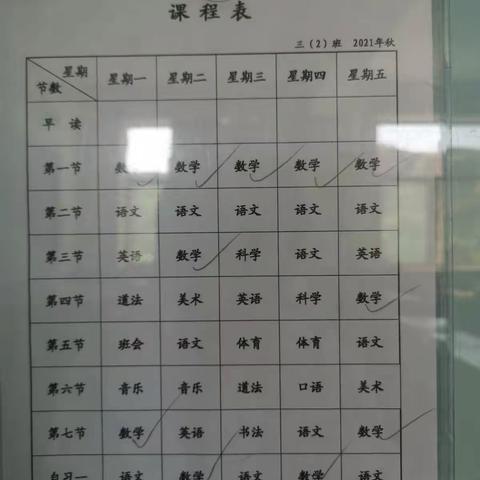 课程表
三（2）班 2021年秋
星期 节数 星期一 星期二 星期三 星期四 星期五
早 读
第一节 数学 数学 数学 数学 数学
第二节 语文 语文 语文 语文 语文
第三节 英语 数学 科学 语文 英语
第四节 道法 美术 英语 科学 数学
第五节 班会 语文 体育 体育 语文
第六节 音乐 音乐 道法 口语 美术
第七节 数学 英语 书法 语文 数学
自习一 语文 数学 语文 数学 语文